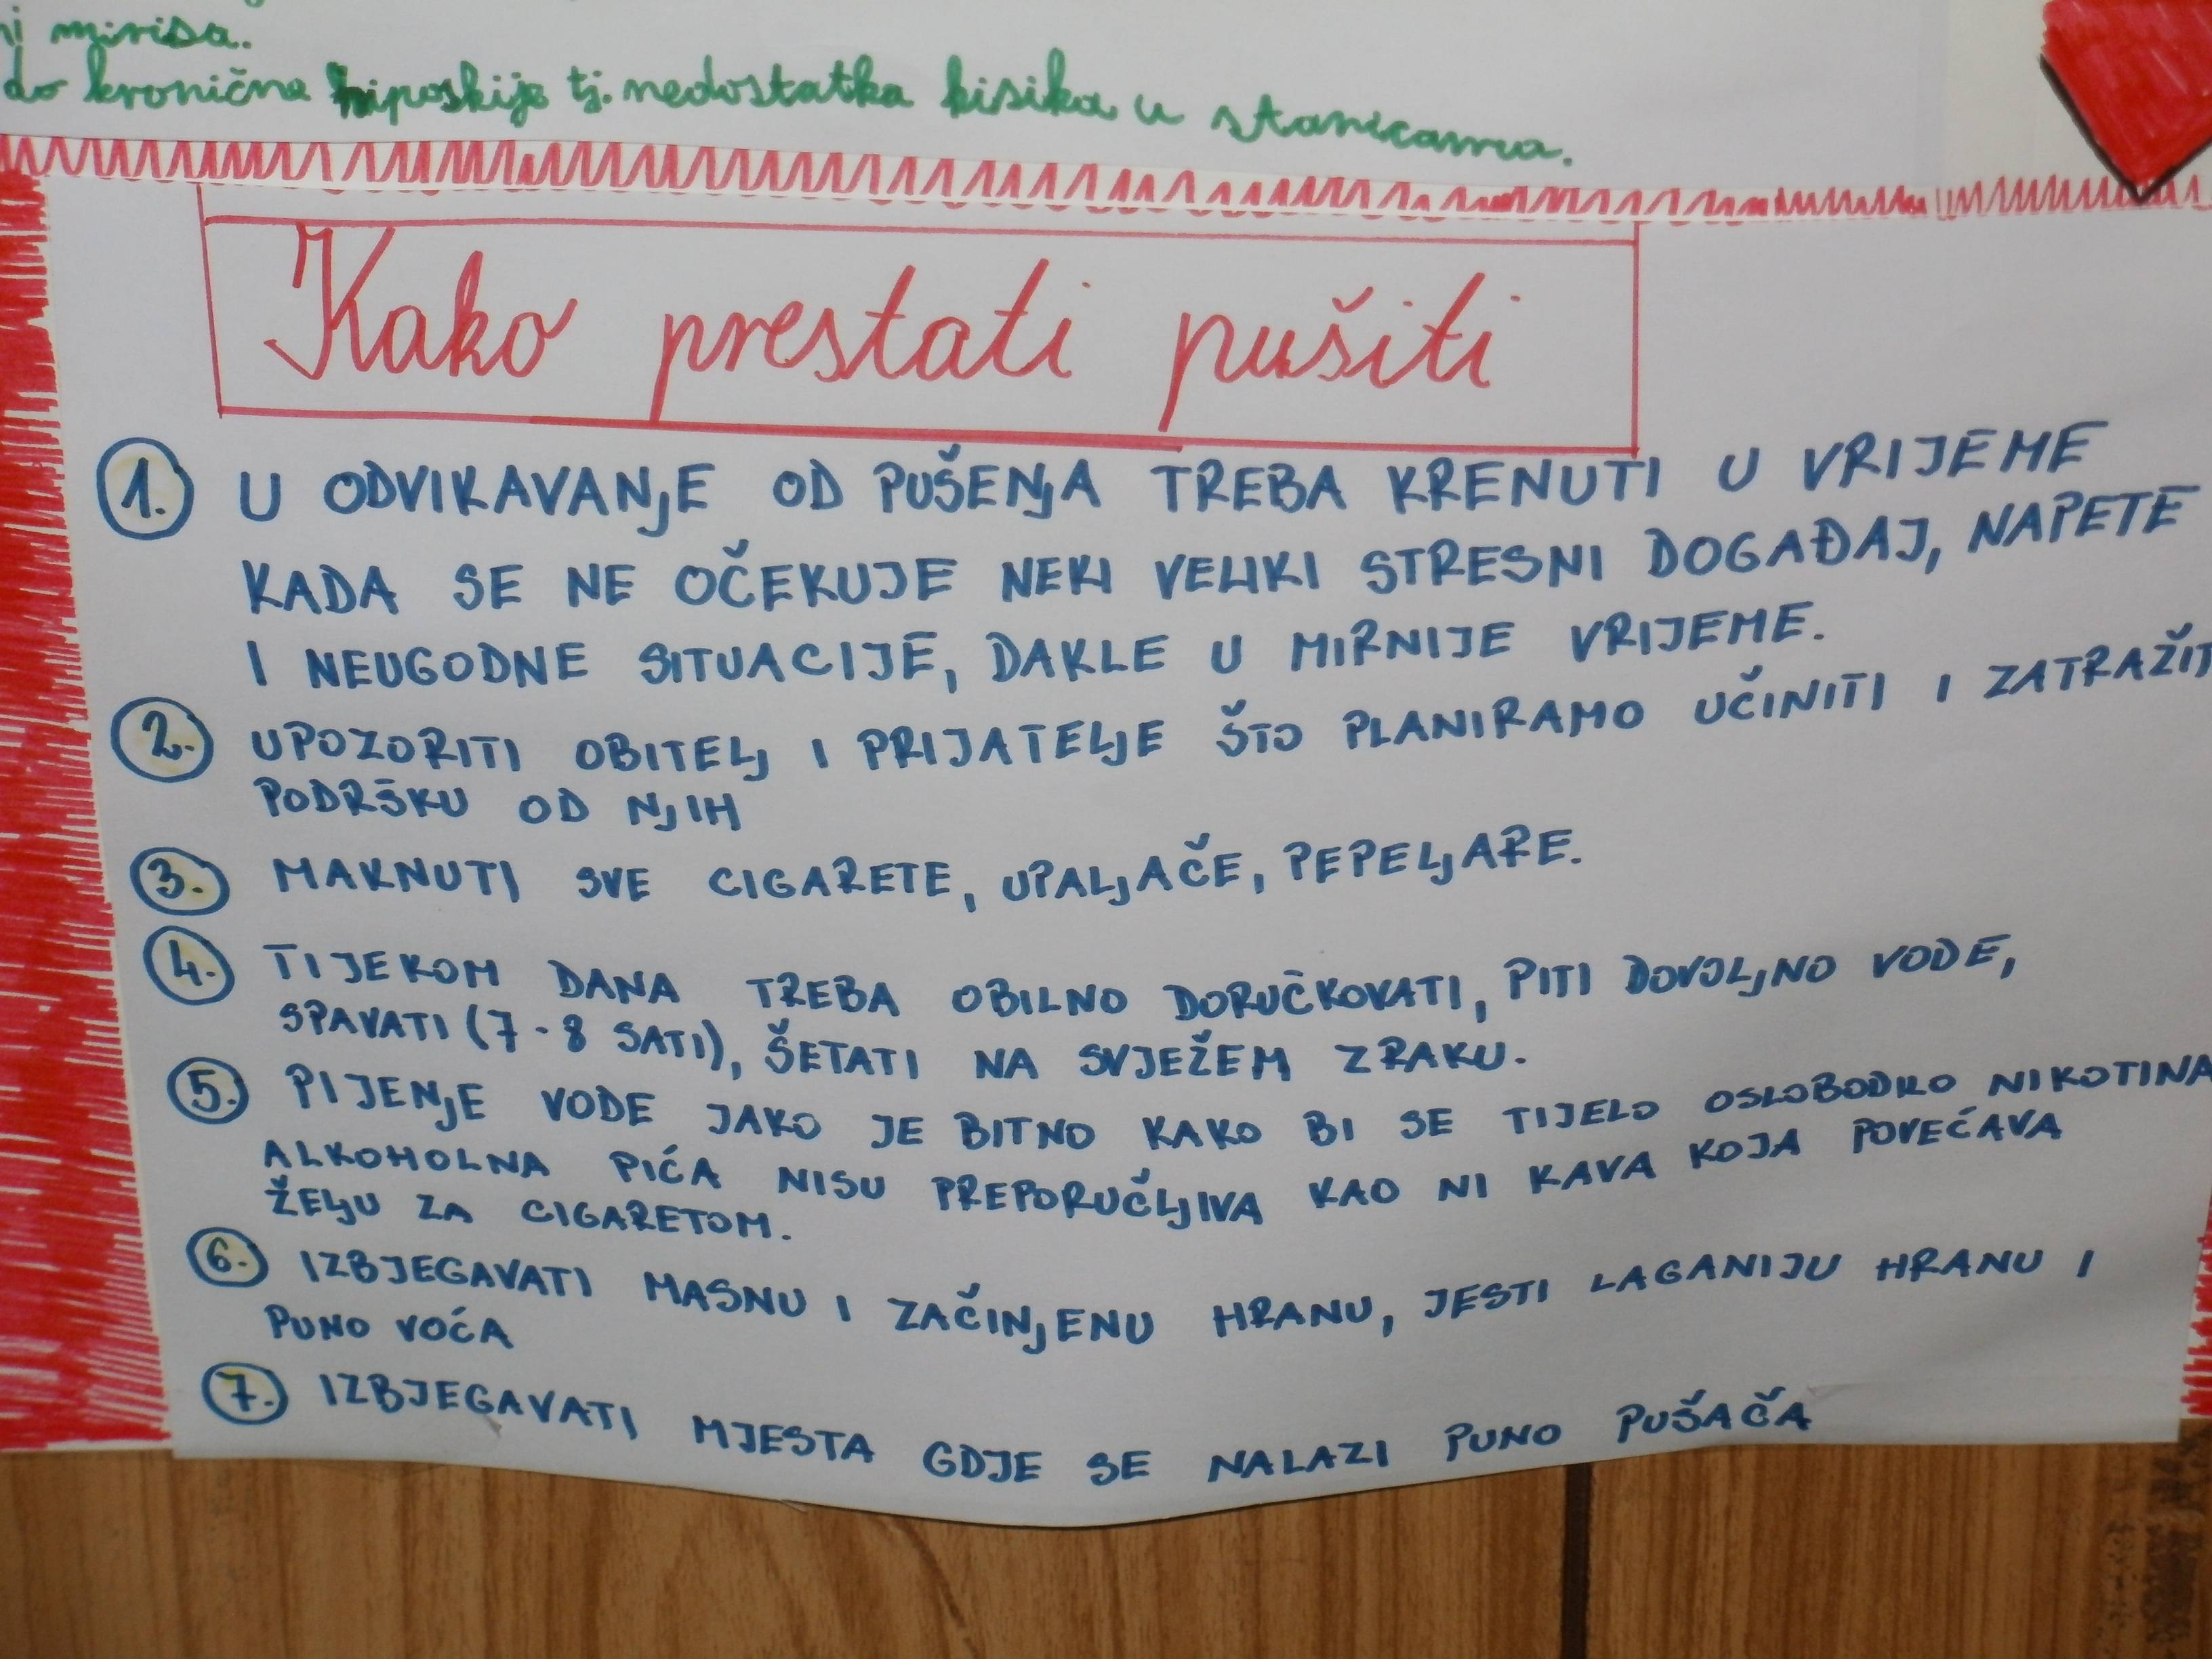 mirisa.
do kronične hiposkije tj. nedostatka kisika u stanicama.
Kako prestati pušiti
1. U ODVIKAVANJE OD PUŠENJA TREBA KRENUTI U VRIJEME
KADA SE NE OČEKUJE NEKI VELIKI STRESNI DOGAĐAJ, NAPETE
I NEUGODNE SITUACIJE, DAKLE U MIRNIJE VRIJEME.
2. UPOZORITI OBITELJ I PRIJATELJE ŠTO PLANIRAMO UČINITI I ZATRAŽITI
PODRŠKU OD NJIH
3. MAKNUTI SVE CIGARETE, UPALJAČE, PEPELJARE.
4. TIJEKOM DANA TREBA OBILNO DORUČKOVATI, PITI DOVOLJNO VODE,
SPAVATI (7-8 SATI), ŠETATI NA SVJEŽEM ZRAKU.
5. PIJENJE VODE JAKO JE BITNO KAKO BI SE TIJELO OSLOBODILO NIKOTINA
ALKOHOLNA PIĆA NISU PREPORUČLJIVA KAO NI KAVA KOJA POVEĆAVA
ŽELJU ZA CIGARETOM.
6. IZBJEGAVATI MASNU I ZAČINJENU HRANU, JESTI LAGANIJU HRANU I
PUNO VOĆA
7. IZBJEGAVATI MJESTA GDJE SE NALAZI PUNO PUŠAČA